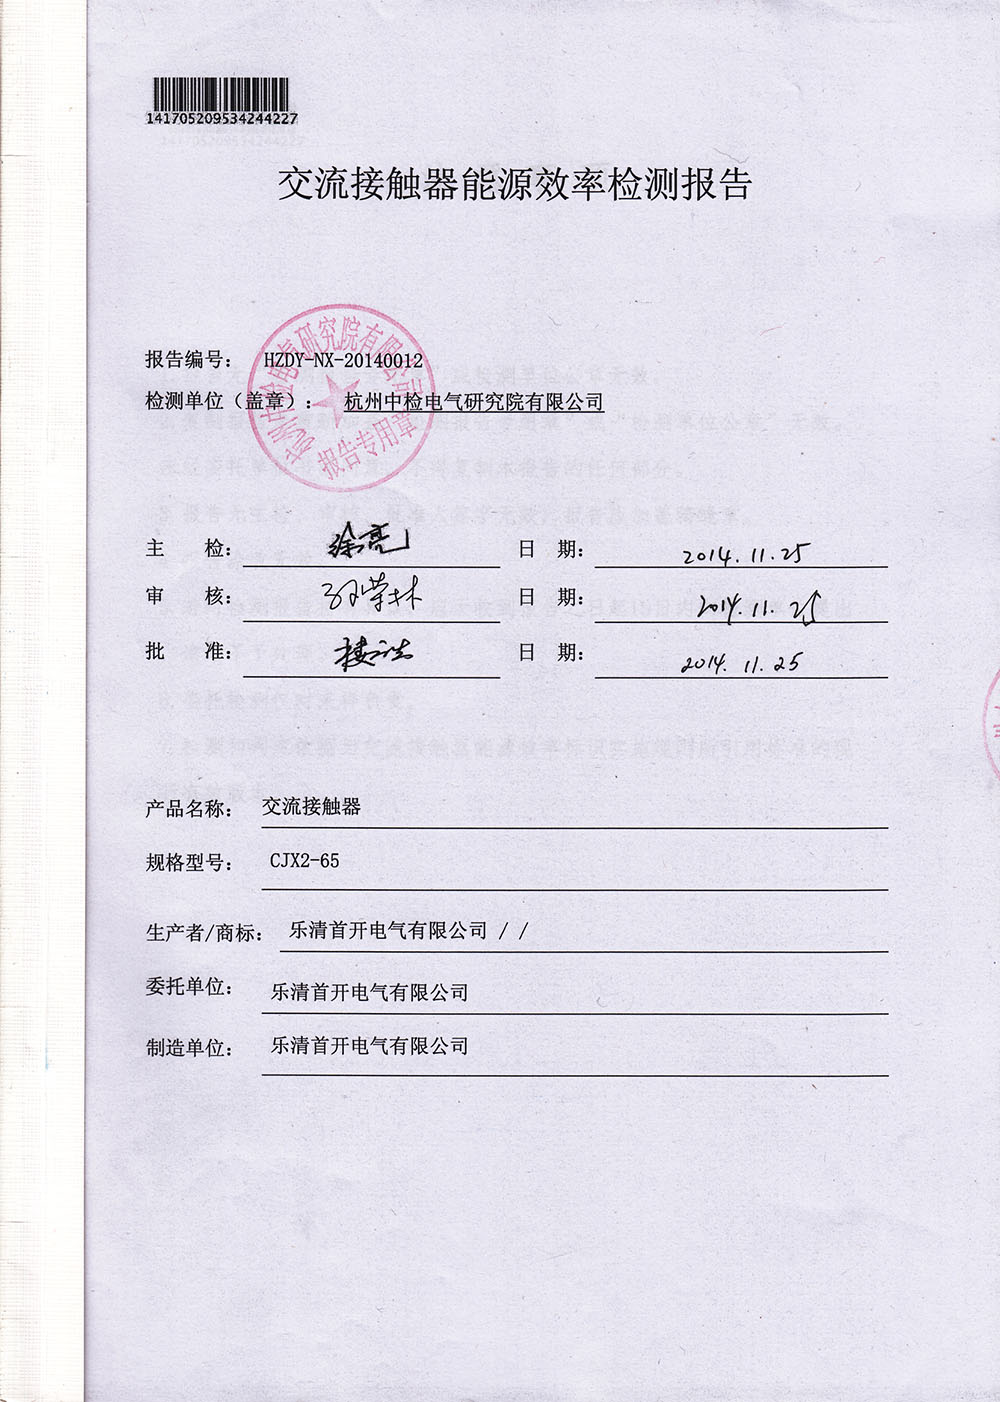 141705209534244227
交流接触器能源效率检测报告
报告编号： HZDY-NX-20140012
检测单位（盖章）： 杭州中检电气研究院有限公司
杭州中检电气研究院有限公司
报告专用章
主 检： 徐亮 日 期： 2014.11.25
审 核： 孙荣林 日 期： 2014.11.25
批 准： 日 期： 2014.11.25
产品名称： 交流接触器
规格型号： CJX2-65
生产者/商标： 乐清首开电气有限公司 / /
委托单位： 乐清首开电气有限公司
制造单位： 乐清首开电气有限公司